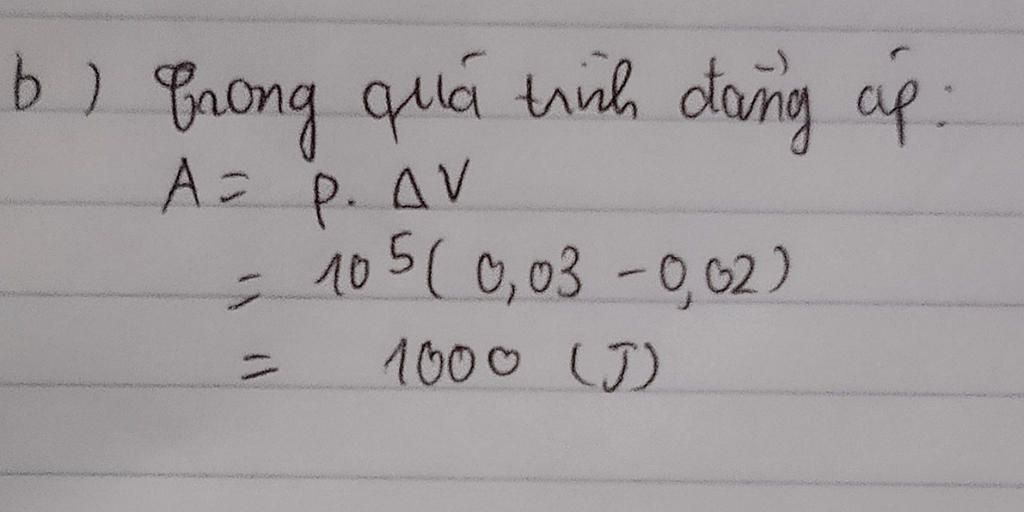 b) Trong quá trình đẳng áp:
A = p. ΔV
= 10⁵( 0,03 - 0,02)
= 1000 (J)